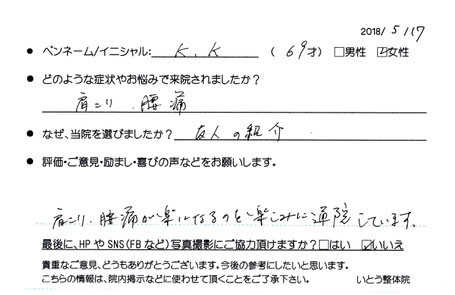 2018/5/17
● ペンネーム/イニシャル: K.K (69才) □男性 ☑女性
● どのような症状やお悩みで来院されましたか?
肩こり、腰痛
● なぜ、当院を選びましたか? 友人の紹介
● 評価・ご意見・励まし・喜びの声などをお願いします。
肩こり、腰痛が楽になるのを楽しみに通院しています。
最後に、HPやSNS(FBなど)写真撮影にご協力頂けますか?□はい ☑いいえ
貴重なご意見、どうもありがとうございます。今後の参考にしたいと思います。
こちらの情報は、院内掲示などに使わせて頂くことをご了承下さい。 いとう整体院